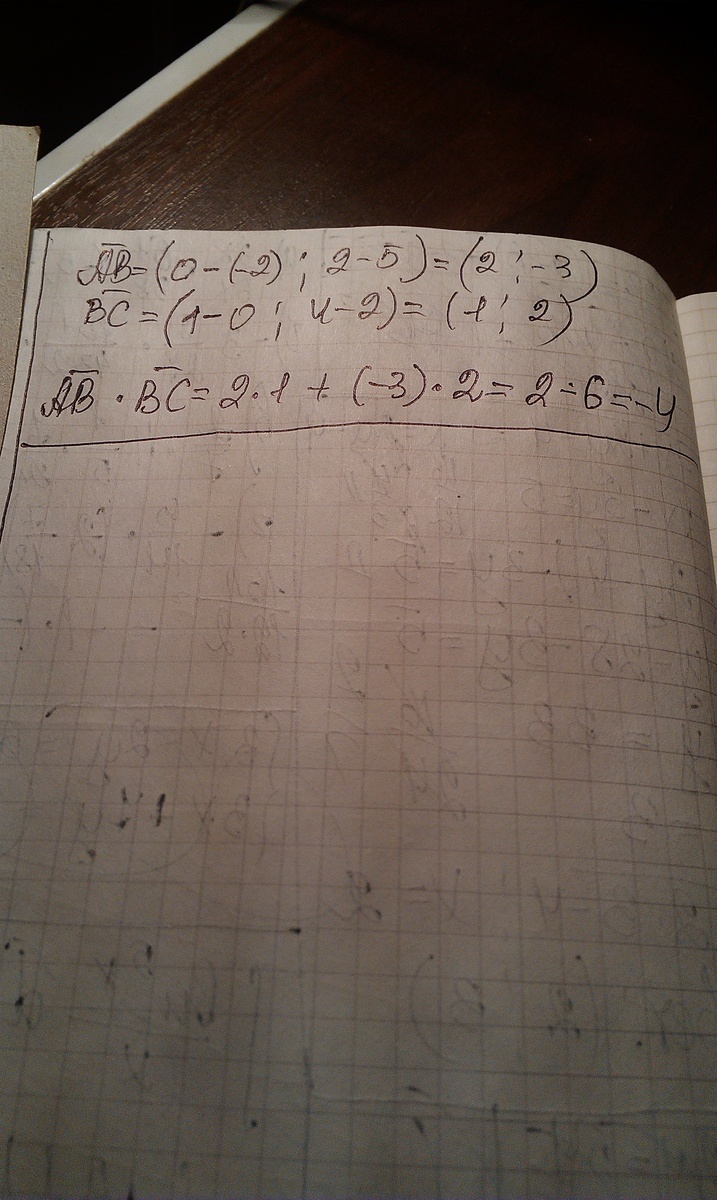 A̅B̅=(0-(-2) ; 2-5)=(2 ; -3)
B̅C̅=(1-0 ; 4-2)=(1 ; 2)
A̅B̅ · B̅C̅=2·1 + (-3)·2=2-6=-4